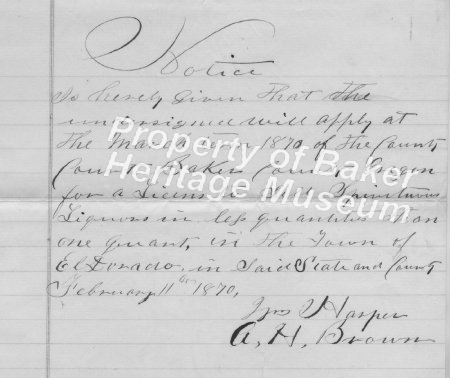 Notice
Is hereby Given that the
undersigned will apply at
the March term 1870 of the County
Court Baker County Oregon
for a License Spirituous
Liquors in less quantities than
one quart, in the Town of
El Dorado, in Said State and County
February 11th 1870,
Jas Harper
A. H. Brown
Property of Baker
Heritage Museum